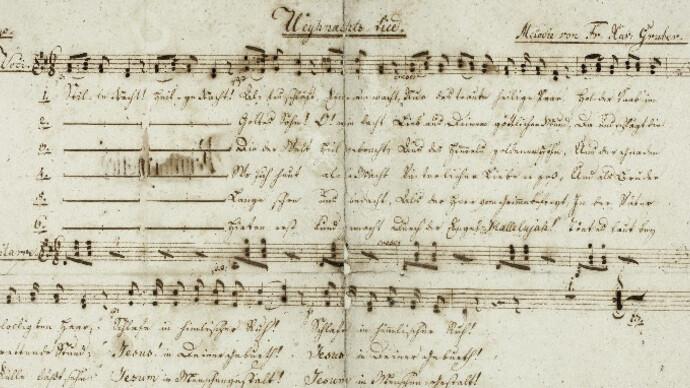 Weyhnachts Lied. Melodie von Fr. Xav. Gruber.
1. Stille Nacht! Heilige Nacht! Alles schläft, Einsam wacht, Nur das traute heilige Paar, Holder Knab im
2. Gottes Sohn! O! wie lacht Lieb aus Deinem göttlichen Mund, Da uns schlägt die
3. Die der Welt Heil gebracht Aus des Himmels goldenen Höhn, Aus der Gnaden
4. Wo sich heut alle Macht Väterlicher Liebe ergoß, Und als Bruder
5. Lange schon uns bedacht, Als der Herr vom Grimme befreyt, In der Väter
6. Hirten erst kund gemacht Durch der Engel Hallelujah! Tönt es laut bey
cresc:
lockigten Haar; Schlafe in himlischer Ruh! Schlafe in himlischer Ruh!
rettende Stund, Jesus! in Deiner Geburth! Jesus in Deiner Geburth!
Fülle läßt sehn Jesum in Menschengestalt! Jesum in Menschengestalt!